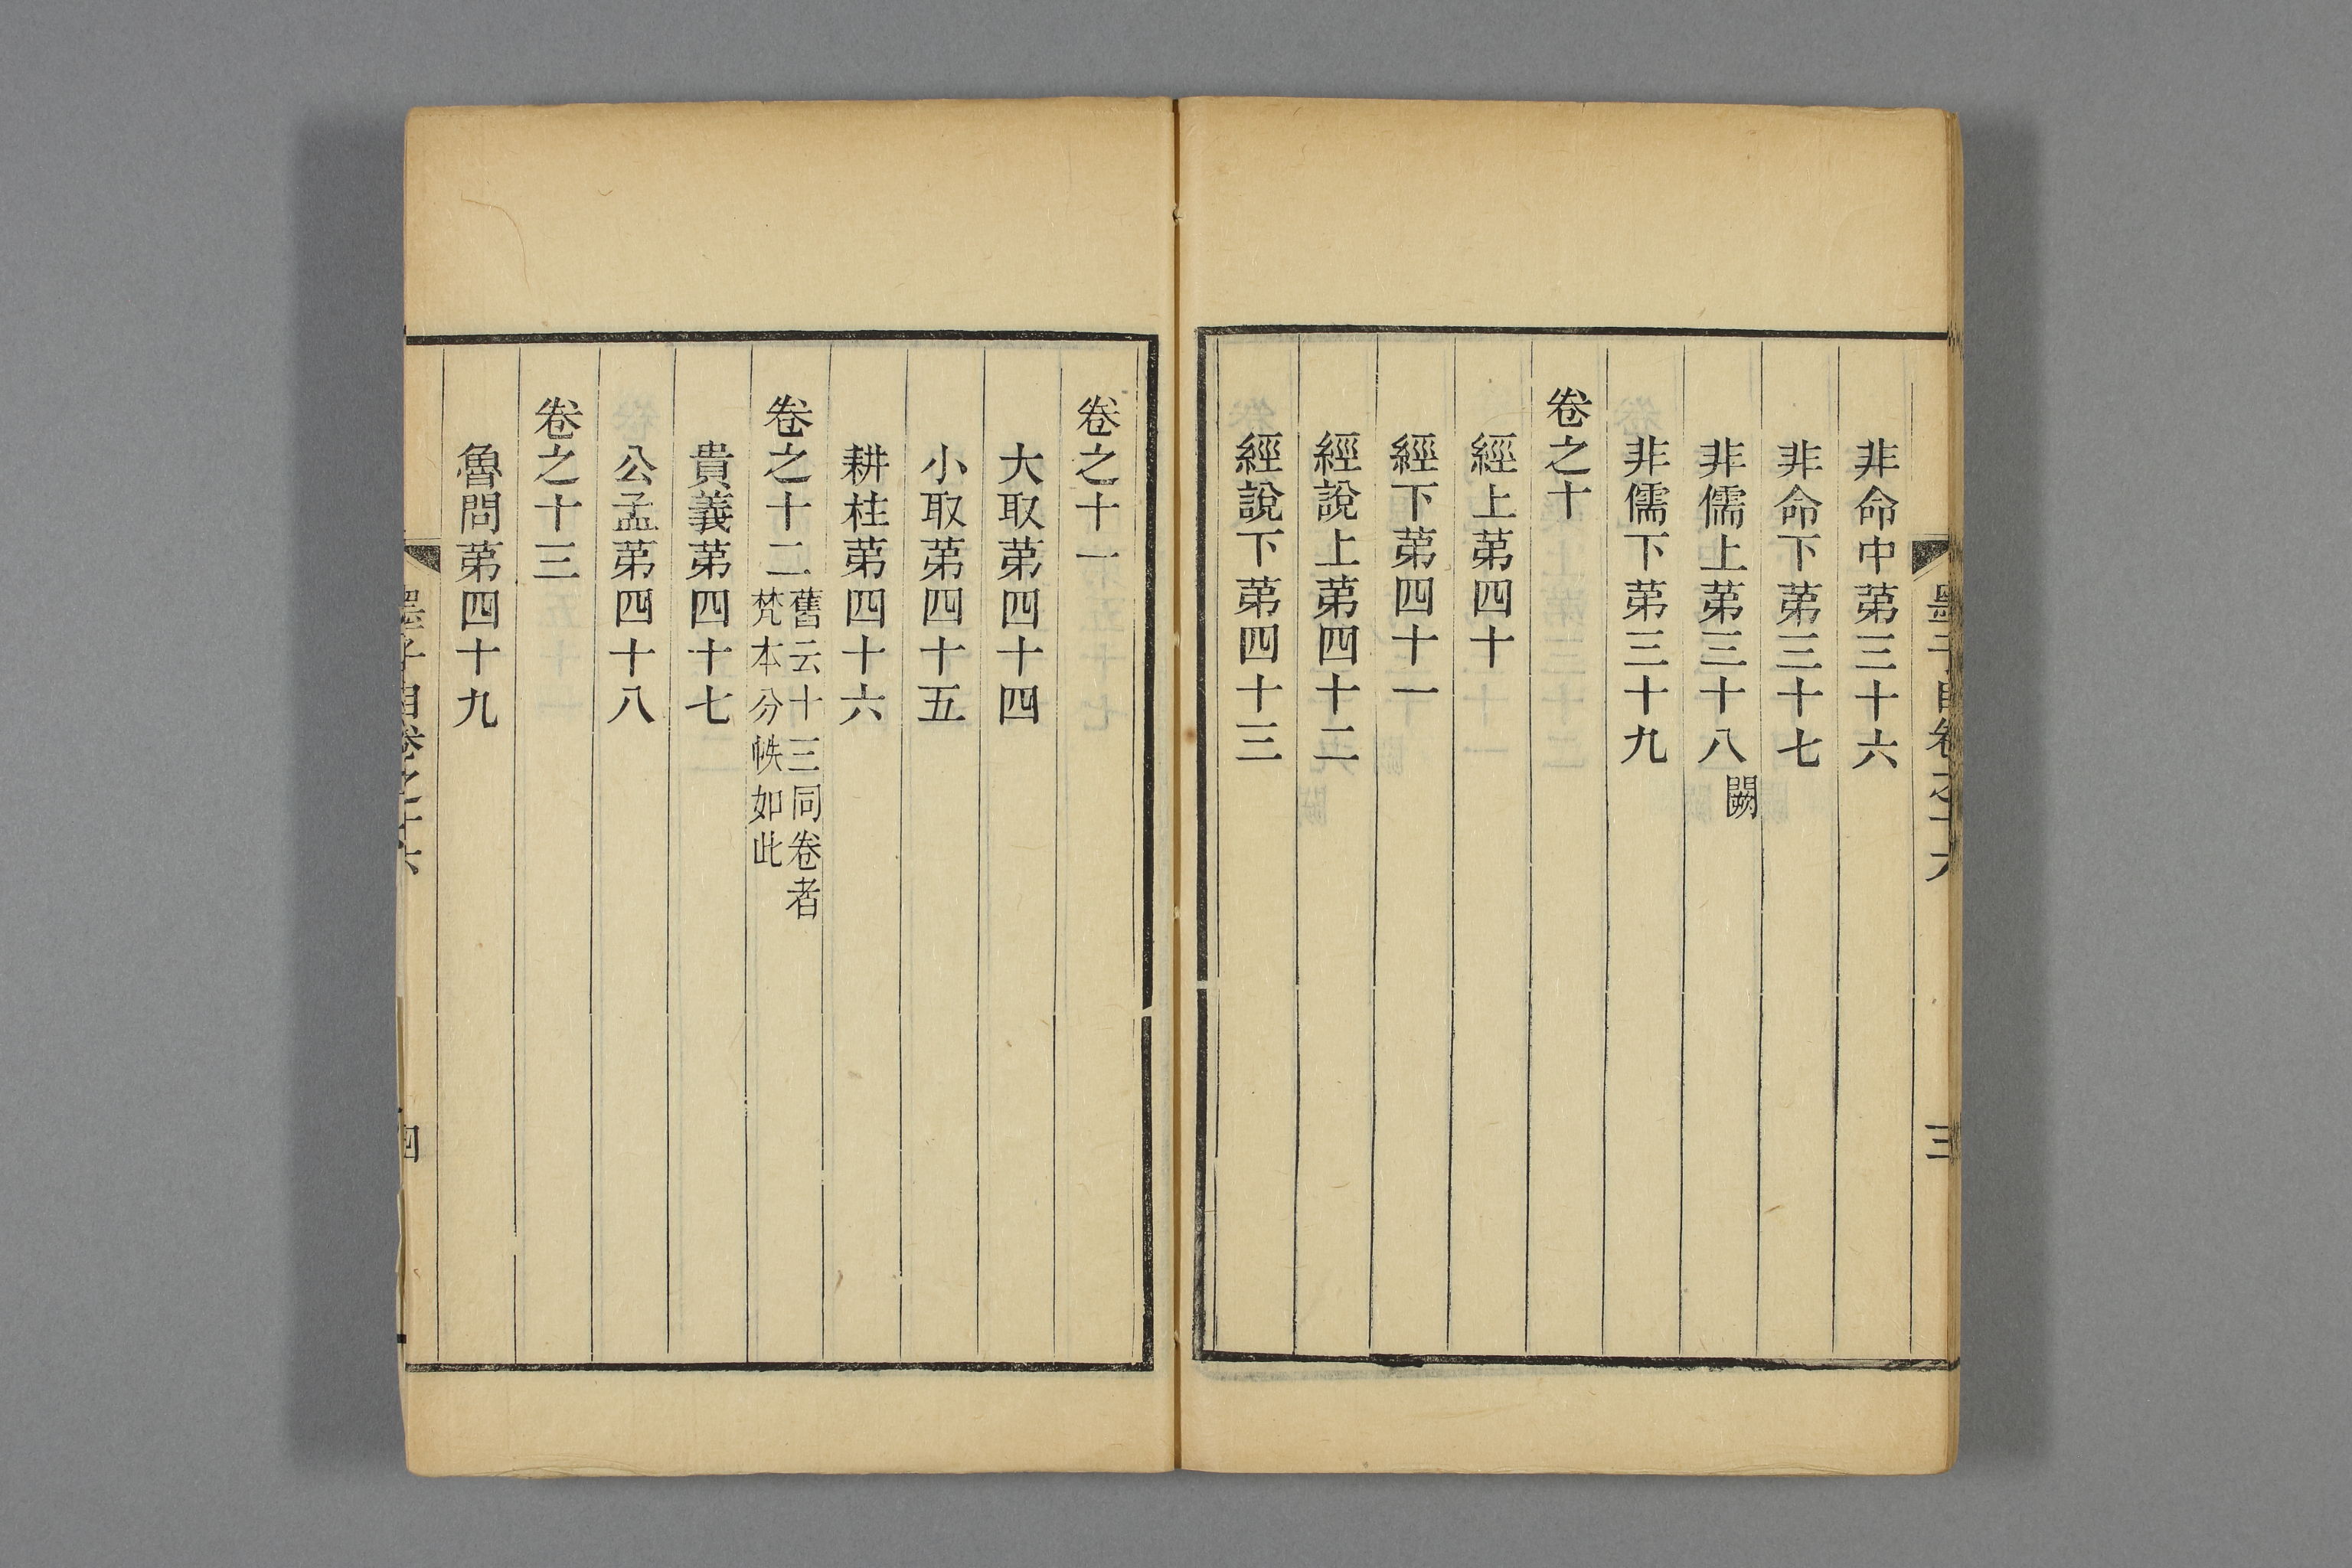 墨子目卷之十六
三
非命中苐三十六
非命下苐三十七
非儒上苐三十八闕
非儒下苐三十九
卷之十
經上苐四十
經下苐四十一
經說上苐四十二
經說下苐四十三
卷之十一
大取苐四十四
小取苐四十五
耕柱苐四十六
卷之十二舊云十三同卷者
梵本分帙如此
貴義苐四十七
公孟苐四十八
卷之十三
魯問苐四十九
墨子目卷之十六
四